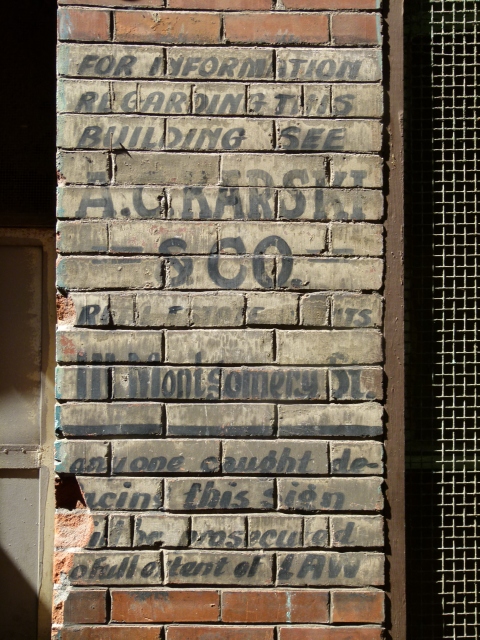 FOR INFORMATION
REGARDING THIS
BUILDING SEE
A.C. KARSKI
& CO.
REAL ESTATE
111 Montgomery St.
anyone caught de-
facing this sign
will be prosecuted
to full extent of LAW